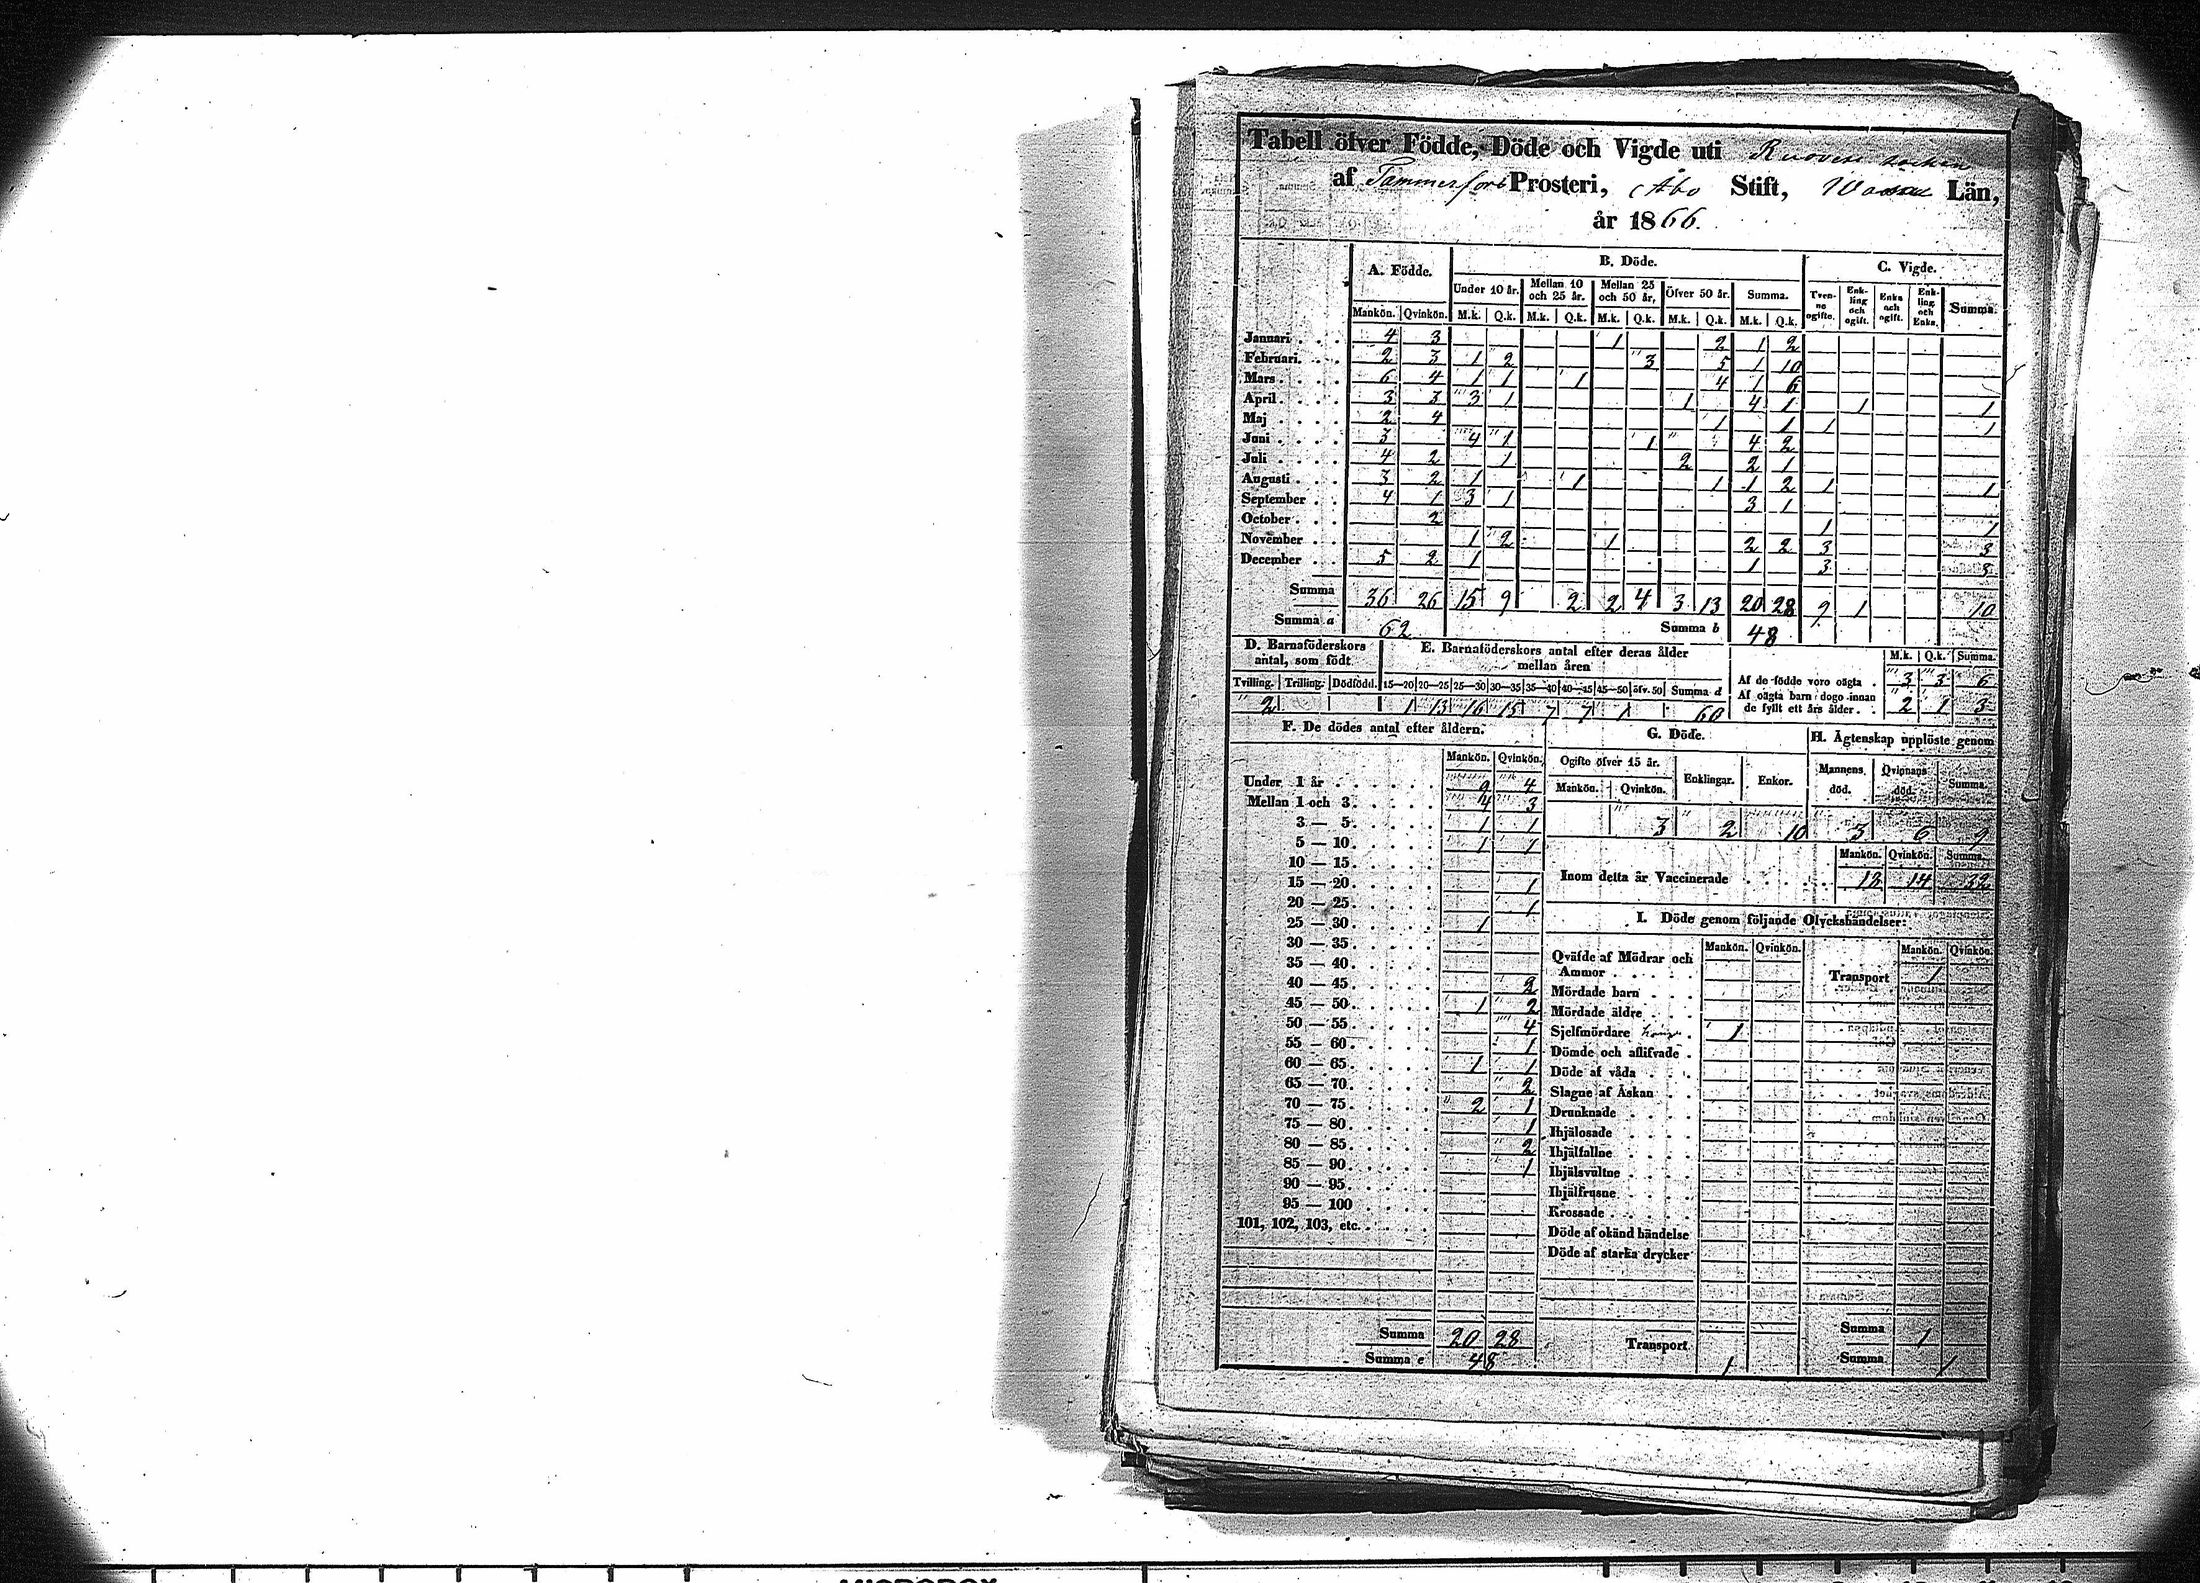 Tabell öfver Födde, Döde och Vigde uti Ruovesi socken
af Tammerfors Prosteri, Åbo Stift, Wasa Län,
år 1866.
A. Födde. B. Döde. C. Vigde.
Under 10 år. Mellan 10 och 25 år. Mellan 25 och 50 år, Öfver 50 år. Summa. Tvenne ogifte. Enkling och ogift. Enka och ogift. Enkling och Enka. Summa.
Mankön. Qvinkön. M.k. Q.k. M.k. Q.k. M.k. Q.k. M.k. Q.k. M.k. Q.k.
Januari 4 3 1 2 1 2
Februari 2 3 1 2 3 5 1 10
Mars 6 4 1 1 1 4 1 6
April 3 3 3 1 1 4 1 1 1
Maj 2 4 1 1 1 1
Juni 3 4 1 1 4 2
Juli 4 2 1 2 2 1
Augusti 3 2 1 1 1 1 2 1 1
September 4 1 3 1 3 1
October 2 1 1
November 1 2 1 2 2 3 3
December 5 2 1 1 3 3
Summa 36 26 15 9 2 2 4 3 13 20 28 9 1 10
Summa a 62 Summa b 48
D. Barnaföderskors antal, som födt
E. Barnaföderskors antal efter deras ålder mellan åren
M.k. Q.k. Summa.
Tvilling. Trilling. Dödfödd. 15—20 20—25 25—30 30—35 35—40 40—45 45—50 öfv. 50 Summa d
2 1 13 16 15 7 7 1 60
Af de födde voro oägta . 3 3 6
Af oägta barn dogo innan de fyllt ett års ålder . . 2 1 3
F. De dödes antal efter åldern.
Mankön. Qvinkön.
Under 1 år 9 4
Mellan 1 och 3 4 3
3 — 5 1 1
5 — 10 1 1
10 — 15
15 — 20 1
20 — 25 1
25 — 30 1
30 — 35
35 — 40
40 — 45 2
45 — 50 1 2
50 — 55 4
55 — 60 1
60 — 65 1 1
65 — 70 2
70 — 75 2 1
75 — 80 1
80 — 85 2
85 — 90 1
90 — 95
95 — 100
101, 102, 103, etc.
Summa 20 28
Summa e 48
G. Döde.
Ogifte öfver 15 år. Enklingar. Enkor.
Mankön. Qvinkön.
3 2 10
H. Ägtenskap upplöste genom
Mannens död. Qvinnans död. Summa.
3 6 9
Mankön. Qvinkön. Summa.
Inom detta år Vaccinerade 14
I. Döde genom följande Olyckshändelser:
Mankön. Qvinkön. Mankön. Qvinkön.
Qväfde af Mödrar och Ammor
Transport 1
Mördade barn
Mördade äldre
Sjelfmördare 1
Dömde och aflifvade
Döde af våda
Slagne af Åskan
Drunknade
Ihjälosade
Ihjälfallne
Ihjälsvultne
Ihjälfrusne
Krossade
Döde af okänd händelse
Döde af starka drycker
Transport 1
Summa 1
Summa 1